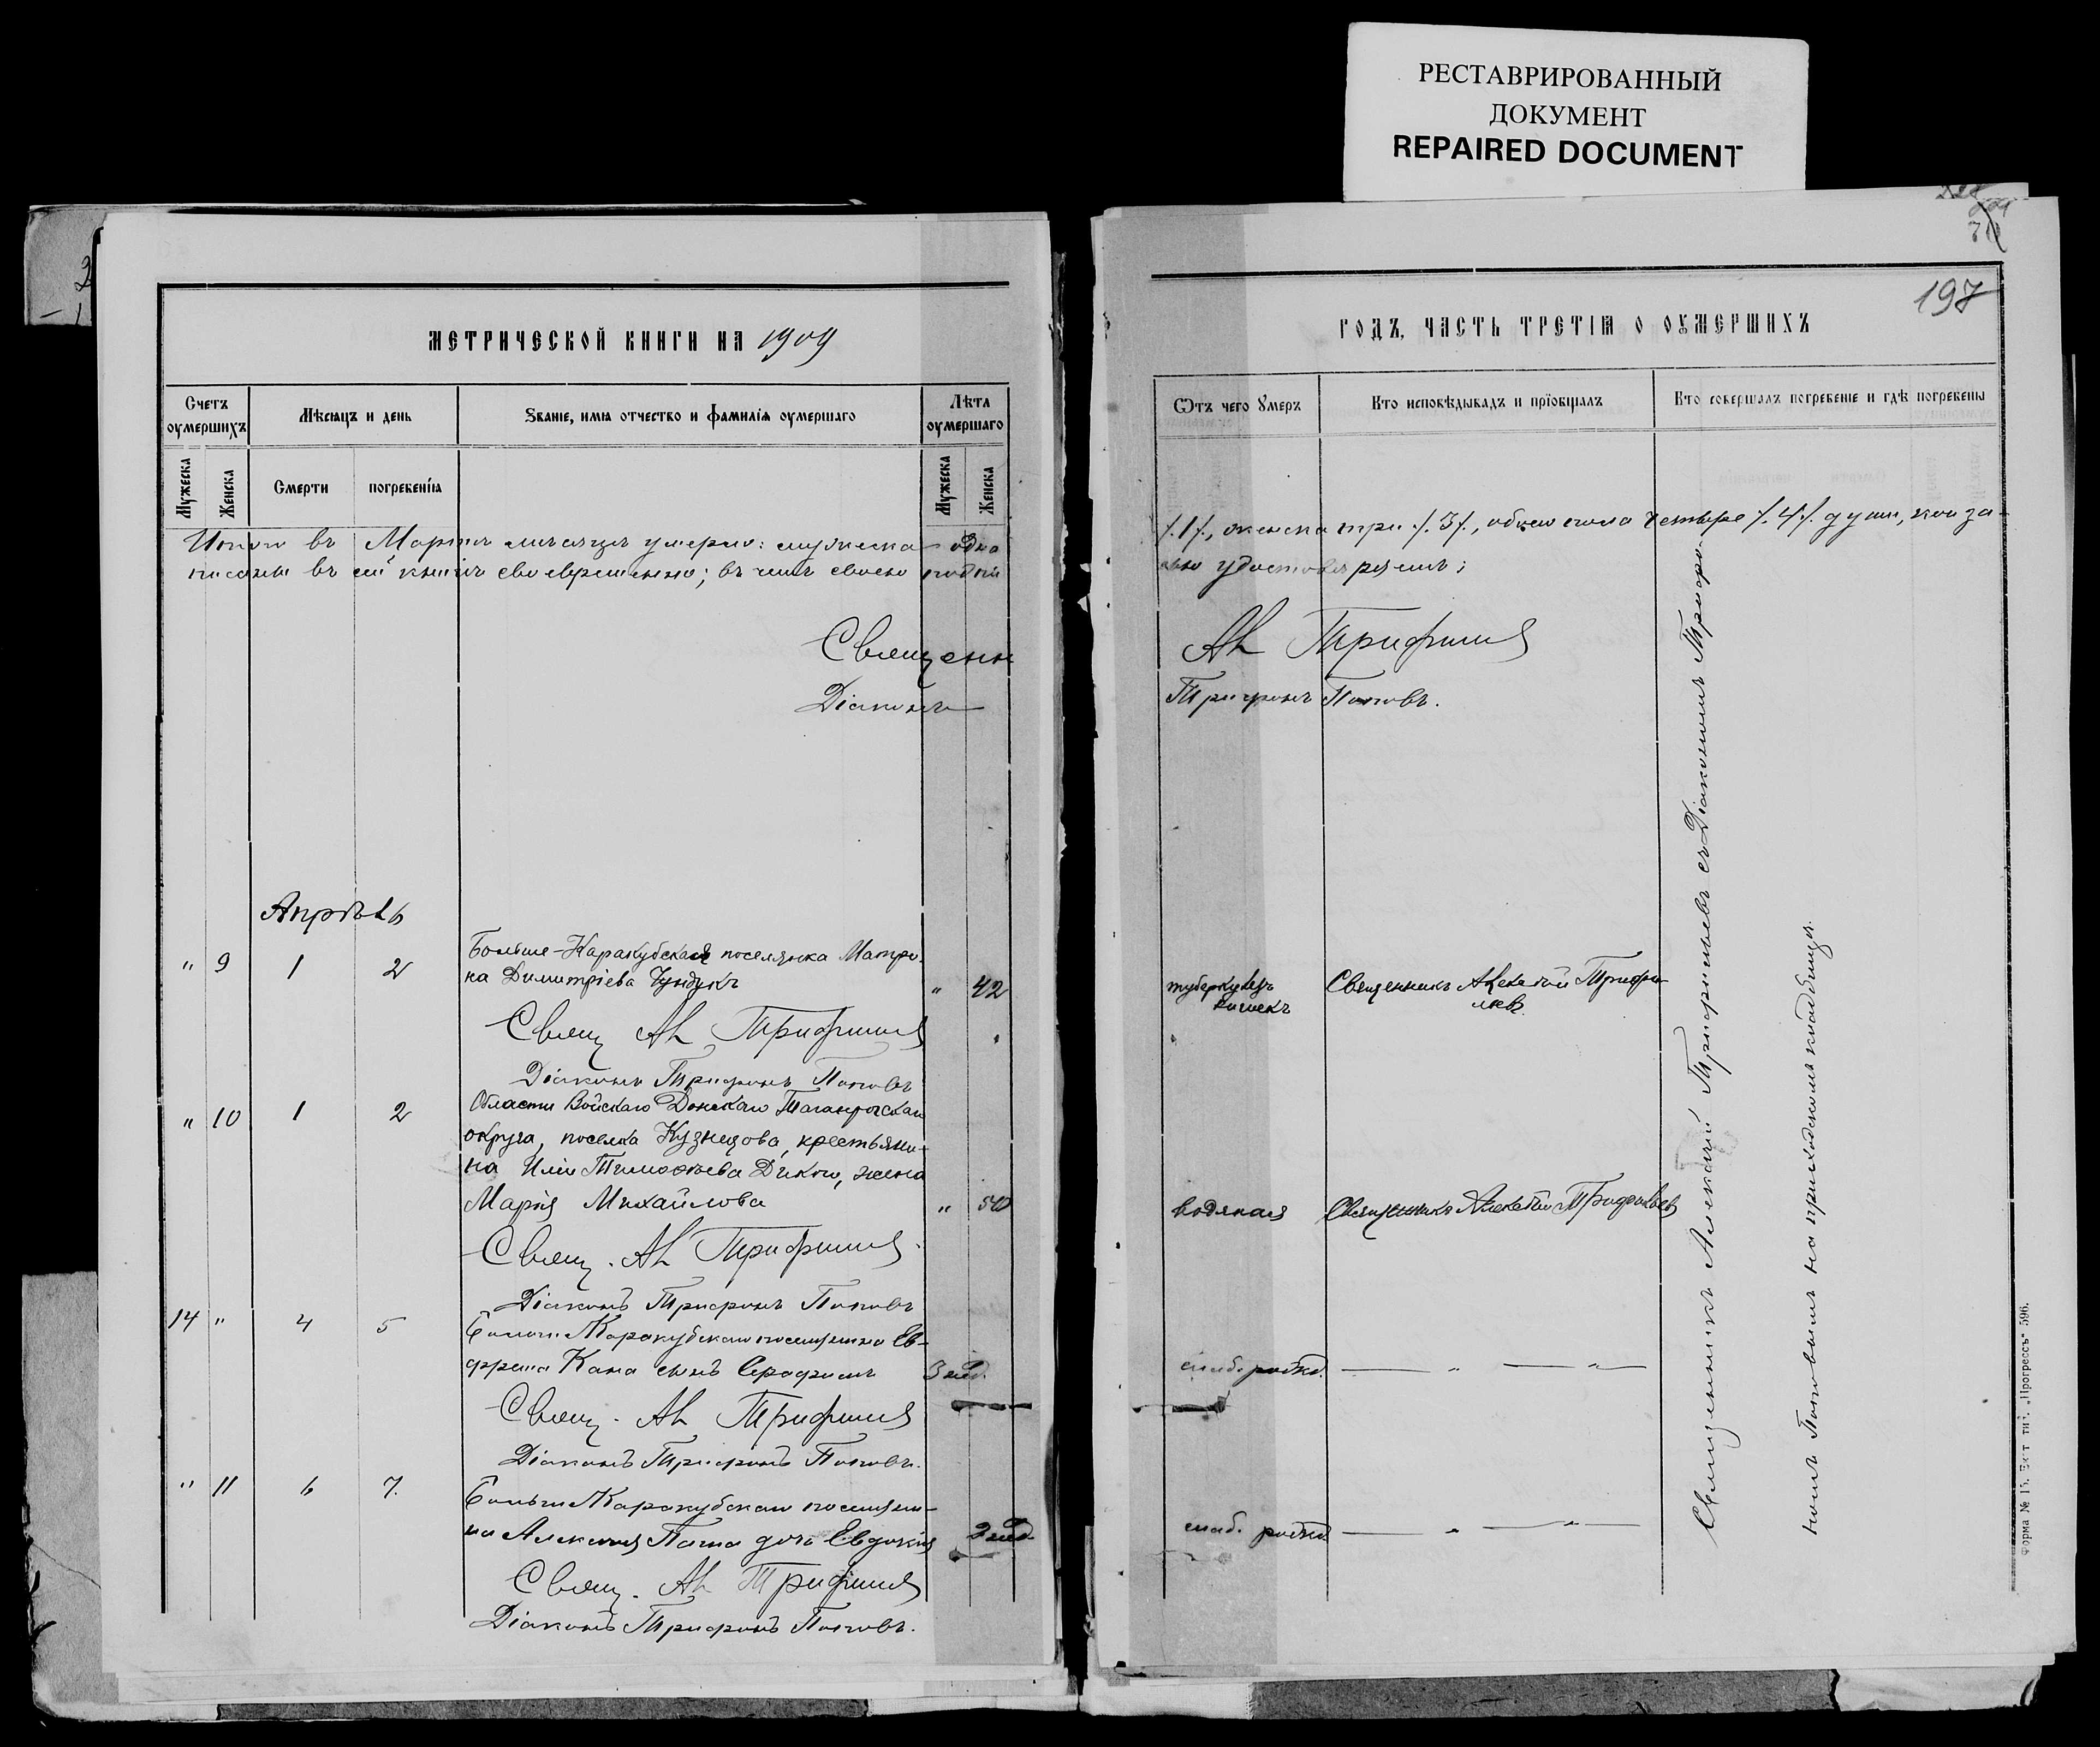 РЕСТАВРИРОВАННЫЙ
ДОКУМЕНТ
REPAIRED DOCUMENT
МЕТРИЧЕСКОЙ КНИГИ НА 1909
Счетъ оумершихъ
Мѣсяцъ и день
Званіе, имя отчество и фамилія оумершаго
Лѣта оумершаго
Мужеска
Женска
Смерти
погребенія
Мужеска
Женска
Итого въ Мартѣ мѣсяцѣ умерло: мужеска одна
писаны въ сей книгѣ своевременно; въ чемъ своею подпи
Священн
Діаконъ
Апрѣль
" 9 1 2 Больше-Каракубская поселянка Матро-
на Димитріева Чундукъ " 42
Свящ Ал Трифильев
Діаконъ Трифонъ Поповъ
" 10 1 2 Области Войскаго Донскаго Таганрогскаго
округа, поселка Кузнецова, крестьяни-
на Иліи Тимоѳеева Дикого, жена
Марія Михайлова " 50
Свящ. Ал Трифильев
Діаконъ Трифонъ Поповъ
14 " 4 5 Больше-Каракубскаго поселянина Ев-
фрема Кана сынъ Серафимъ 3 нед.
Свящ. Ал Трифильев
Діаконъ Трифонъ Поповъ.
" 11 6 7. Больше-Каракубскаго поселяни-
на Алексія Папа дочь Евдокія 2 нед.
Свящ. Ал Трифильев
Діаконъ Трифонъ Поповъ.
197
ГОДЪ, ЧАСТЬ ТРЕТІЯ О ОУМЕРШИХЪ
Ѿтъ чего Умеръ
Кто исповѣдывалъ и пріобщалъ
Кто совершалъ погребеніе и гдѣ погребены
/.1/., женска три /.3/., обоего пола четыре /.4./. души, кои за-
сью удостовѣряемъ;
Ал Трифильев
Трифонъ Поповъ.
туберкулезъ
кишекъ
Священникъ Алексій Трифи-
льевъ.
водяная
Священникъ Алексій Трифильевъ
слаб. рожд. — " — "
слаб. рожд. — " — "
Священникъ Алексій Трифильевъ съ Діакономъ Трифо-
номъ Поповымъ на приходскомъ кладбищѣ.
Форма № 15. Екат. тип. „Прогрессъ" 596.